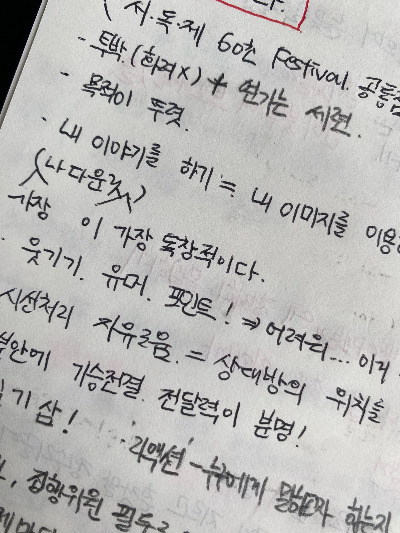 (서·독·제 60초 Festival. 공통점
- 투박.(화려X) + 연기는 세련.
- 목적이 뚜렷.
· 내 이야기를 하기 = 내 이미지를 이용
(나다운
가장 이 가장 독창적이다.
· 웃기기. 유머. 포인트! ⇒ 어려워... 이거
시선처리 자유로움. = 상대방의 위치를
안에 기승전결. 전달력이 분명!
기 삶!
'리액션' - 누구에게 말하고자 하는지
, 집행위원 필두로